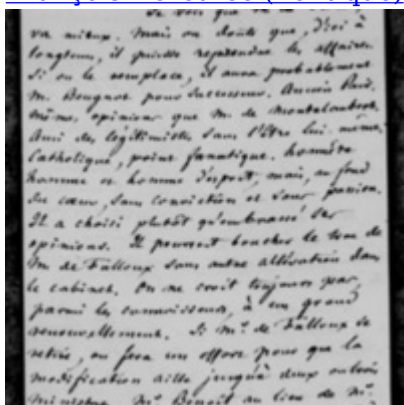 Je vois que
va mieux. Mais on doute que, d'ici à
longtems, il puisse reprendre les affaires.
Si on le remplace, il aura probablement
M. Beugnot pour successeur. Ancien Pair.
Même opinion que M. de Montalembert.
Ami des légitimistes sans l'être lui-même.
Catholique, point fanatique. honnête
homme et homme d'esprit, mais, au fond
du cœur, sans conviction et sans passion.
Il a choisi plutôt qu'embrassé ses
opinions. Il pourroit boucher le trou de
M. de Falloux sans autre altération dans
le cabinet. On ne croit toujours pas,
parmi les connoisseurs, à un grand
renouvellement. Si Mr. de Falloux se
retire, on fera un effort pour que la
modification aille jusqu'à deux ou trois
ministres. Mr. Benoît au lieu de Mr.